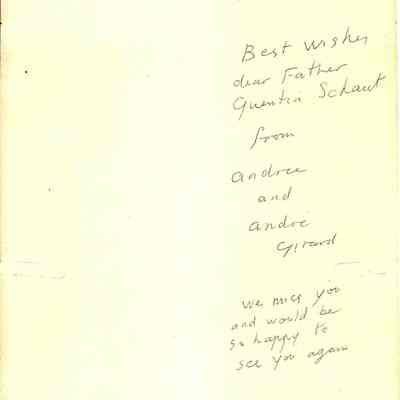 Best wishes
dear Father
Quentin Schaut
from
andrée
and
andré
Girard
we miss you
and would be
so happy to
see you again